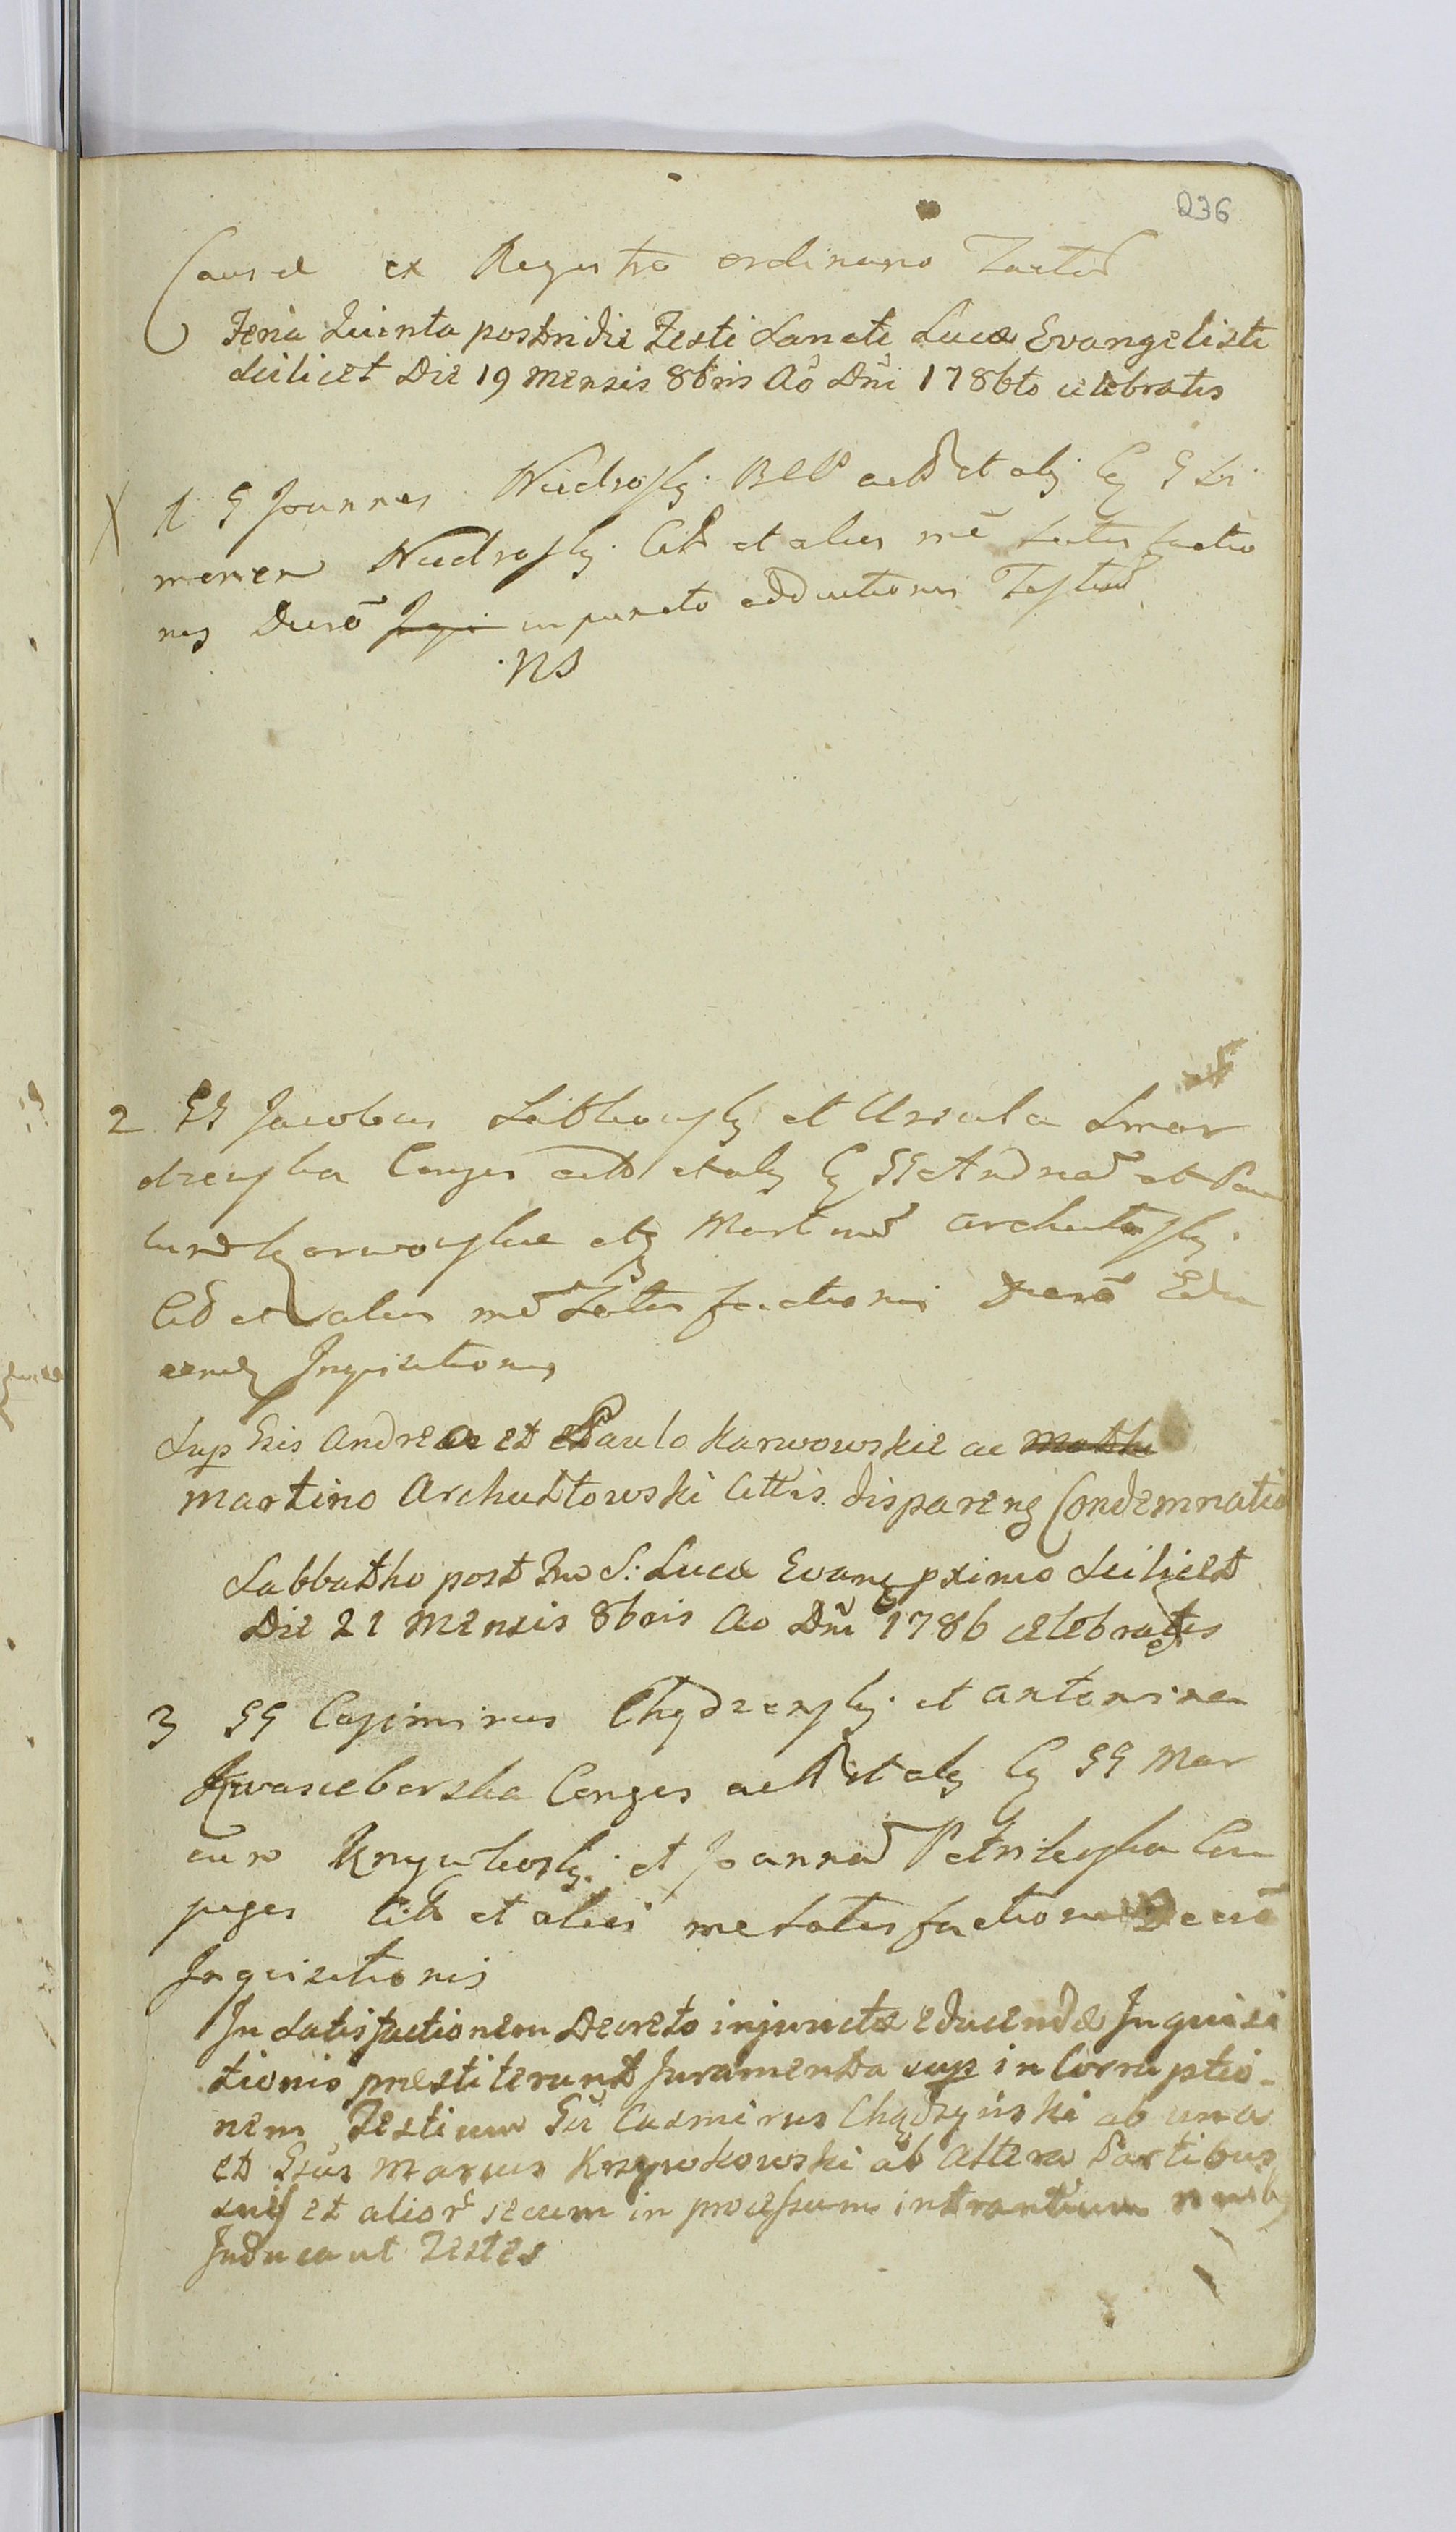 236
Causæ ex Registro ordinario Tactū
Feria Quinta postridie Festi Sancti Lucæ Evangelistæ
Scilicet Die 19 Mensis 8bris Aō Dñi 1786to celebratis
X 1 G Joannes BCP act et alij G
menem Cit et alias mē Satisfactio
nis Decrō in puncto adductionis Testiū
NS
2 GG Jacobus et Ursula Smar
drzewska Conges act et alij GG Andreā et Pau
lum Karwowskie atq Martinū Archutowski
Cit et alias mē Satisfactionis Decrō Edu
cendæ Inquisitionis
Sup Gsis Andrea et Paulo Karwowskie ac
Martino Archuttowski Cittis. disparen Condemnatio
Sabbatho post S: Lucæ Evang pximo Scilicet
Die 21 Mensis 8bris Ao Dñi 1786 celebratis
3 GG Casimirus Chądzynski et Antonina
Kwasieborska Conges act et alij GG Mar
cum et Joannā Con
juges Cit et alias me Satisfactionis Decrō
Inquisitionis
In Satisfactionem Decreto injunctæ educendæ Inquisi
tionis præstiterunt Juramenta sup in Corruptio-
nem Testium Gsū Casmirus Chądzyński ab una
et Gsūs Marcus Krzywkowski ab altera Partibus
suis et alior secum in processum intrantium
Inducant Testes